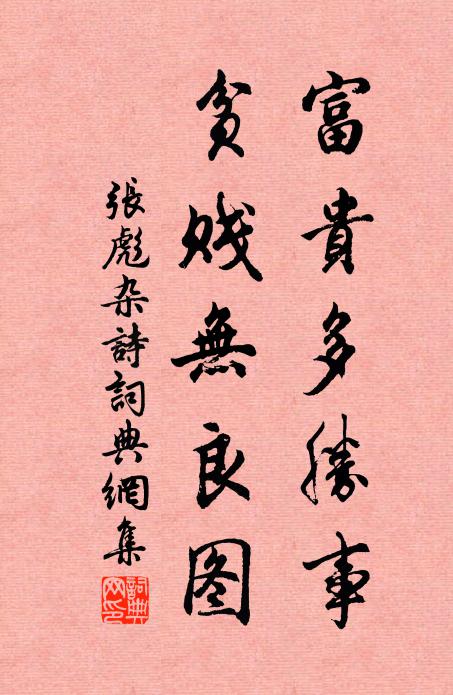 富貴多勝事
貧賤無良图
張彪杂詩詞典網集
詞典網印